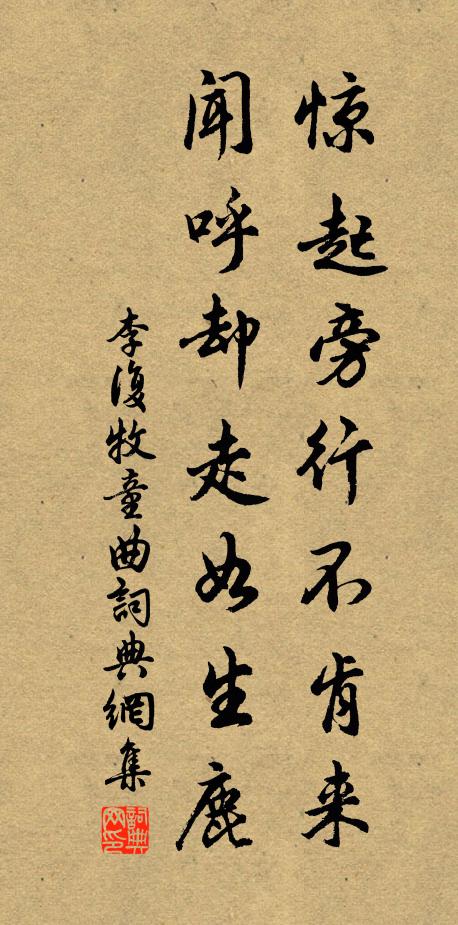 惊起旁行不肯来
闻呼却走如生鹿
李復牧童曲詞典網集
詞典网印